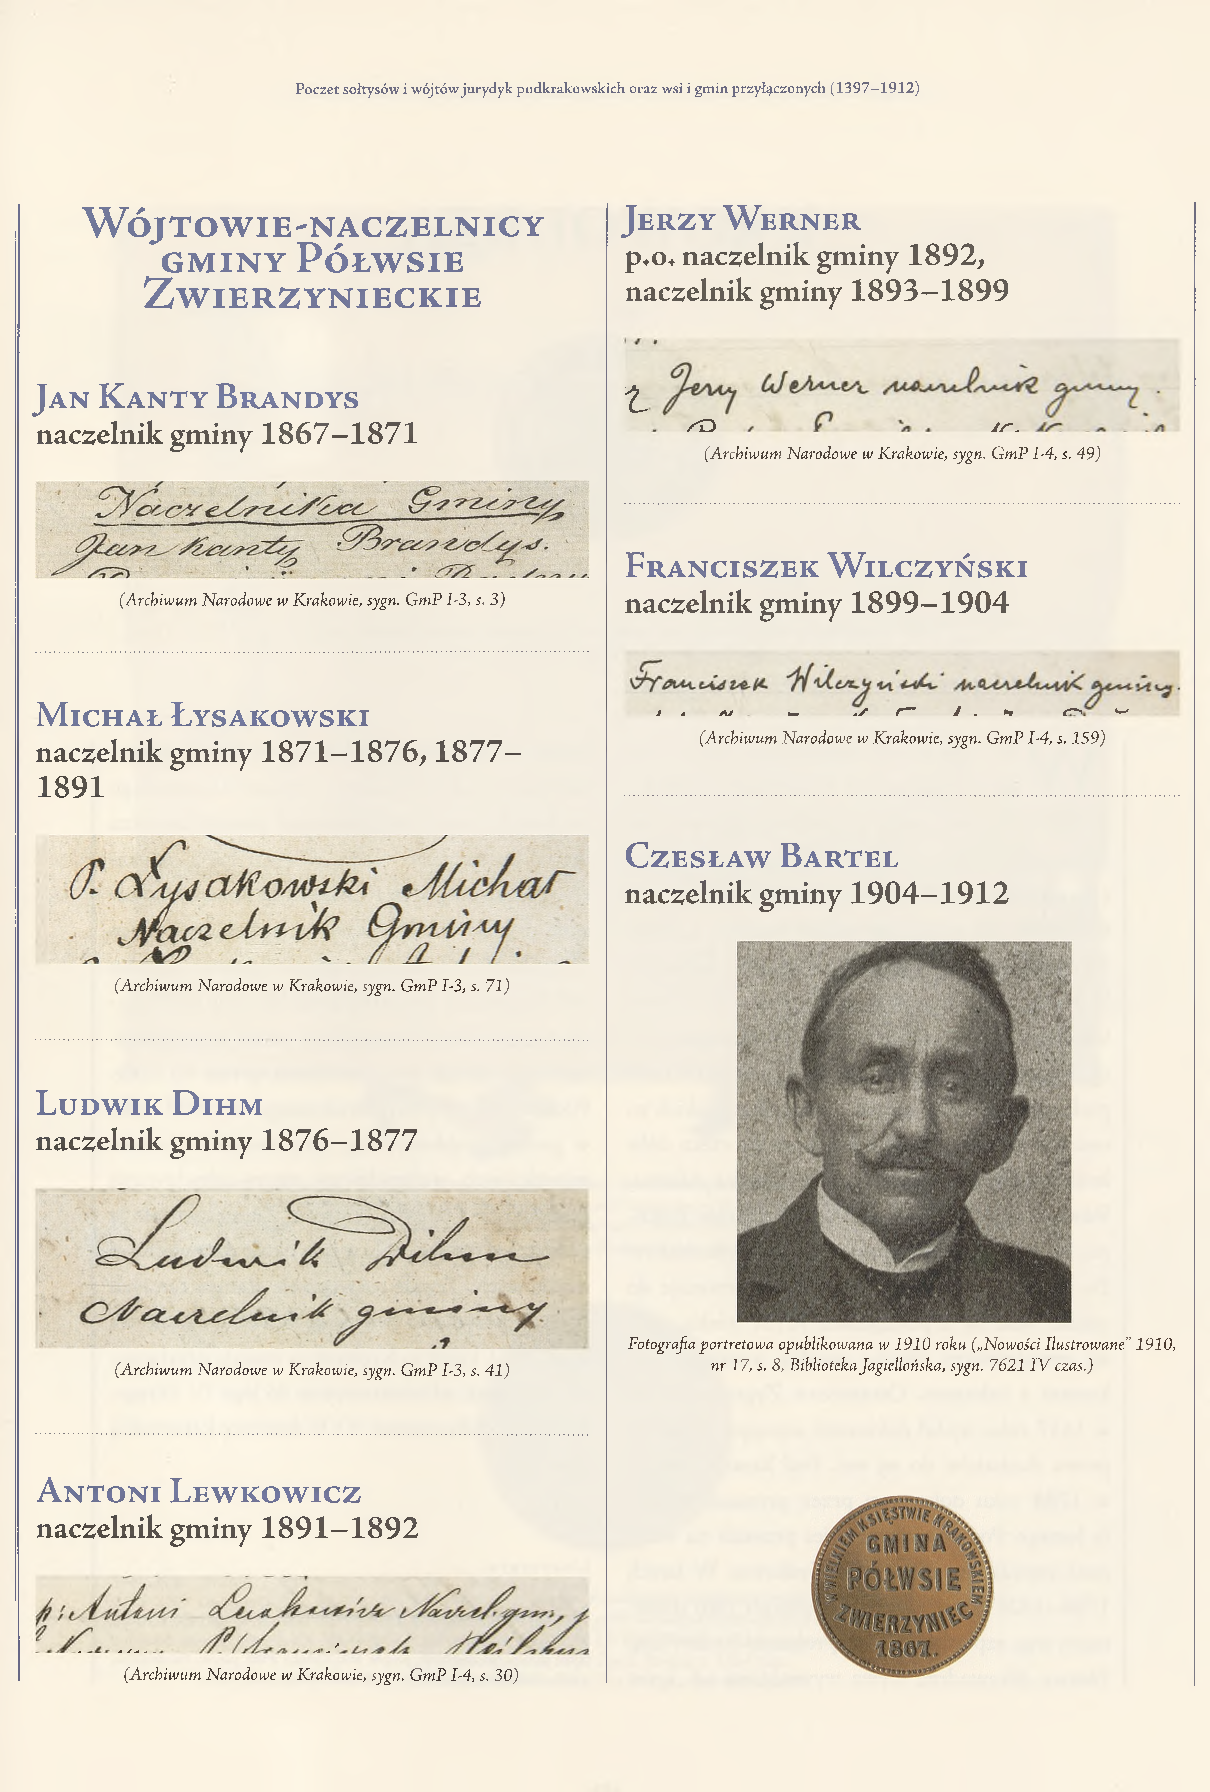 Poczet sołtysów i wójtów jurydyk podkrakowskich oraz wsi i gmin przyłączonych (1397–1912)
Wójtowie-naczelnicy
gminy Półwsie
Zwierzynieckie
Jan Kanty Brandys
naczelnik gminy 1867–1871
Naczelnika Gminy
Jan Kanty Brandys.
(Archiwum Narodowe w Krakowie, sygn. GmP I-3, s. 3)
Michał Łysakowski
naczelnik gminy 1871–1876, 1877–
1891
P. Łysakowski Michał
Naczelnik Gminy
(Archiwum Narodowe w Krakowie, sygn. GmP I-3, s. 71)
Ludwik Dihm
naczelnik gminy 1876–1877
Ludwik Dihm
Naczelnik gminy
(Archiwum Narodowe w Krakowie, sygn. GmP I-3, s. 41)
Antoni Lewkowicz
naczelnik gminy 1891–1892
p: Antoni Lewkowicz Naczel. gm,
(Archiwum Narodowe w Krakowie, sygn. GmP I-4, s. 30)
Jerzy Werner
p.o. naczelnik gminy 1892,
naczelnik gminy 1893–1899
Jerzy Werner naczelnik gminy.
(Archiwum Narodowe w Krakowie, sygn. GmP I-4, s. 49)
Franciszek Wilczyński
naczelnik gminy 1899–1904
Franciszek Wilczyński naczelnik gminy.
(Archiwum Narodowe w Krakowie, sygn. GmP I-4, s. 159)
Czesław Bartel
naczelnik gminy 1904–1912
Fotografia portretowa opublikowana w 1910 roku („Nowości Ilustrowane” 1910,
nr 17, s. 8, Biblioteka Jagiellońska, sygn. 7621 IV czas.)
W WIELKIEM KSIĘSTWIE KRAKOWSKIEM
GMINA
PÓŁWSIE
ZWIERZYNIEC
1867.